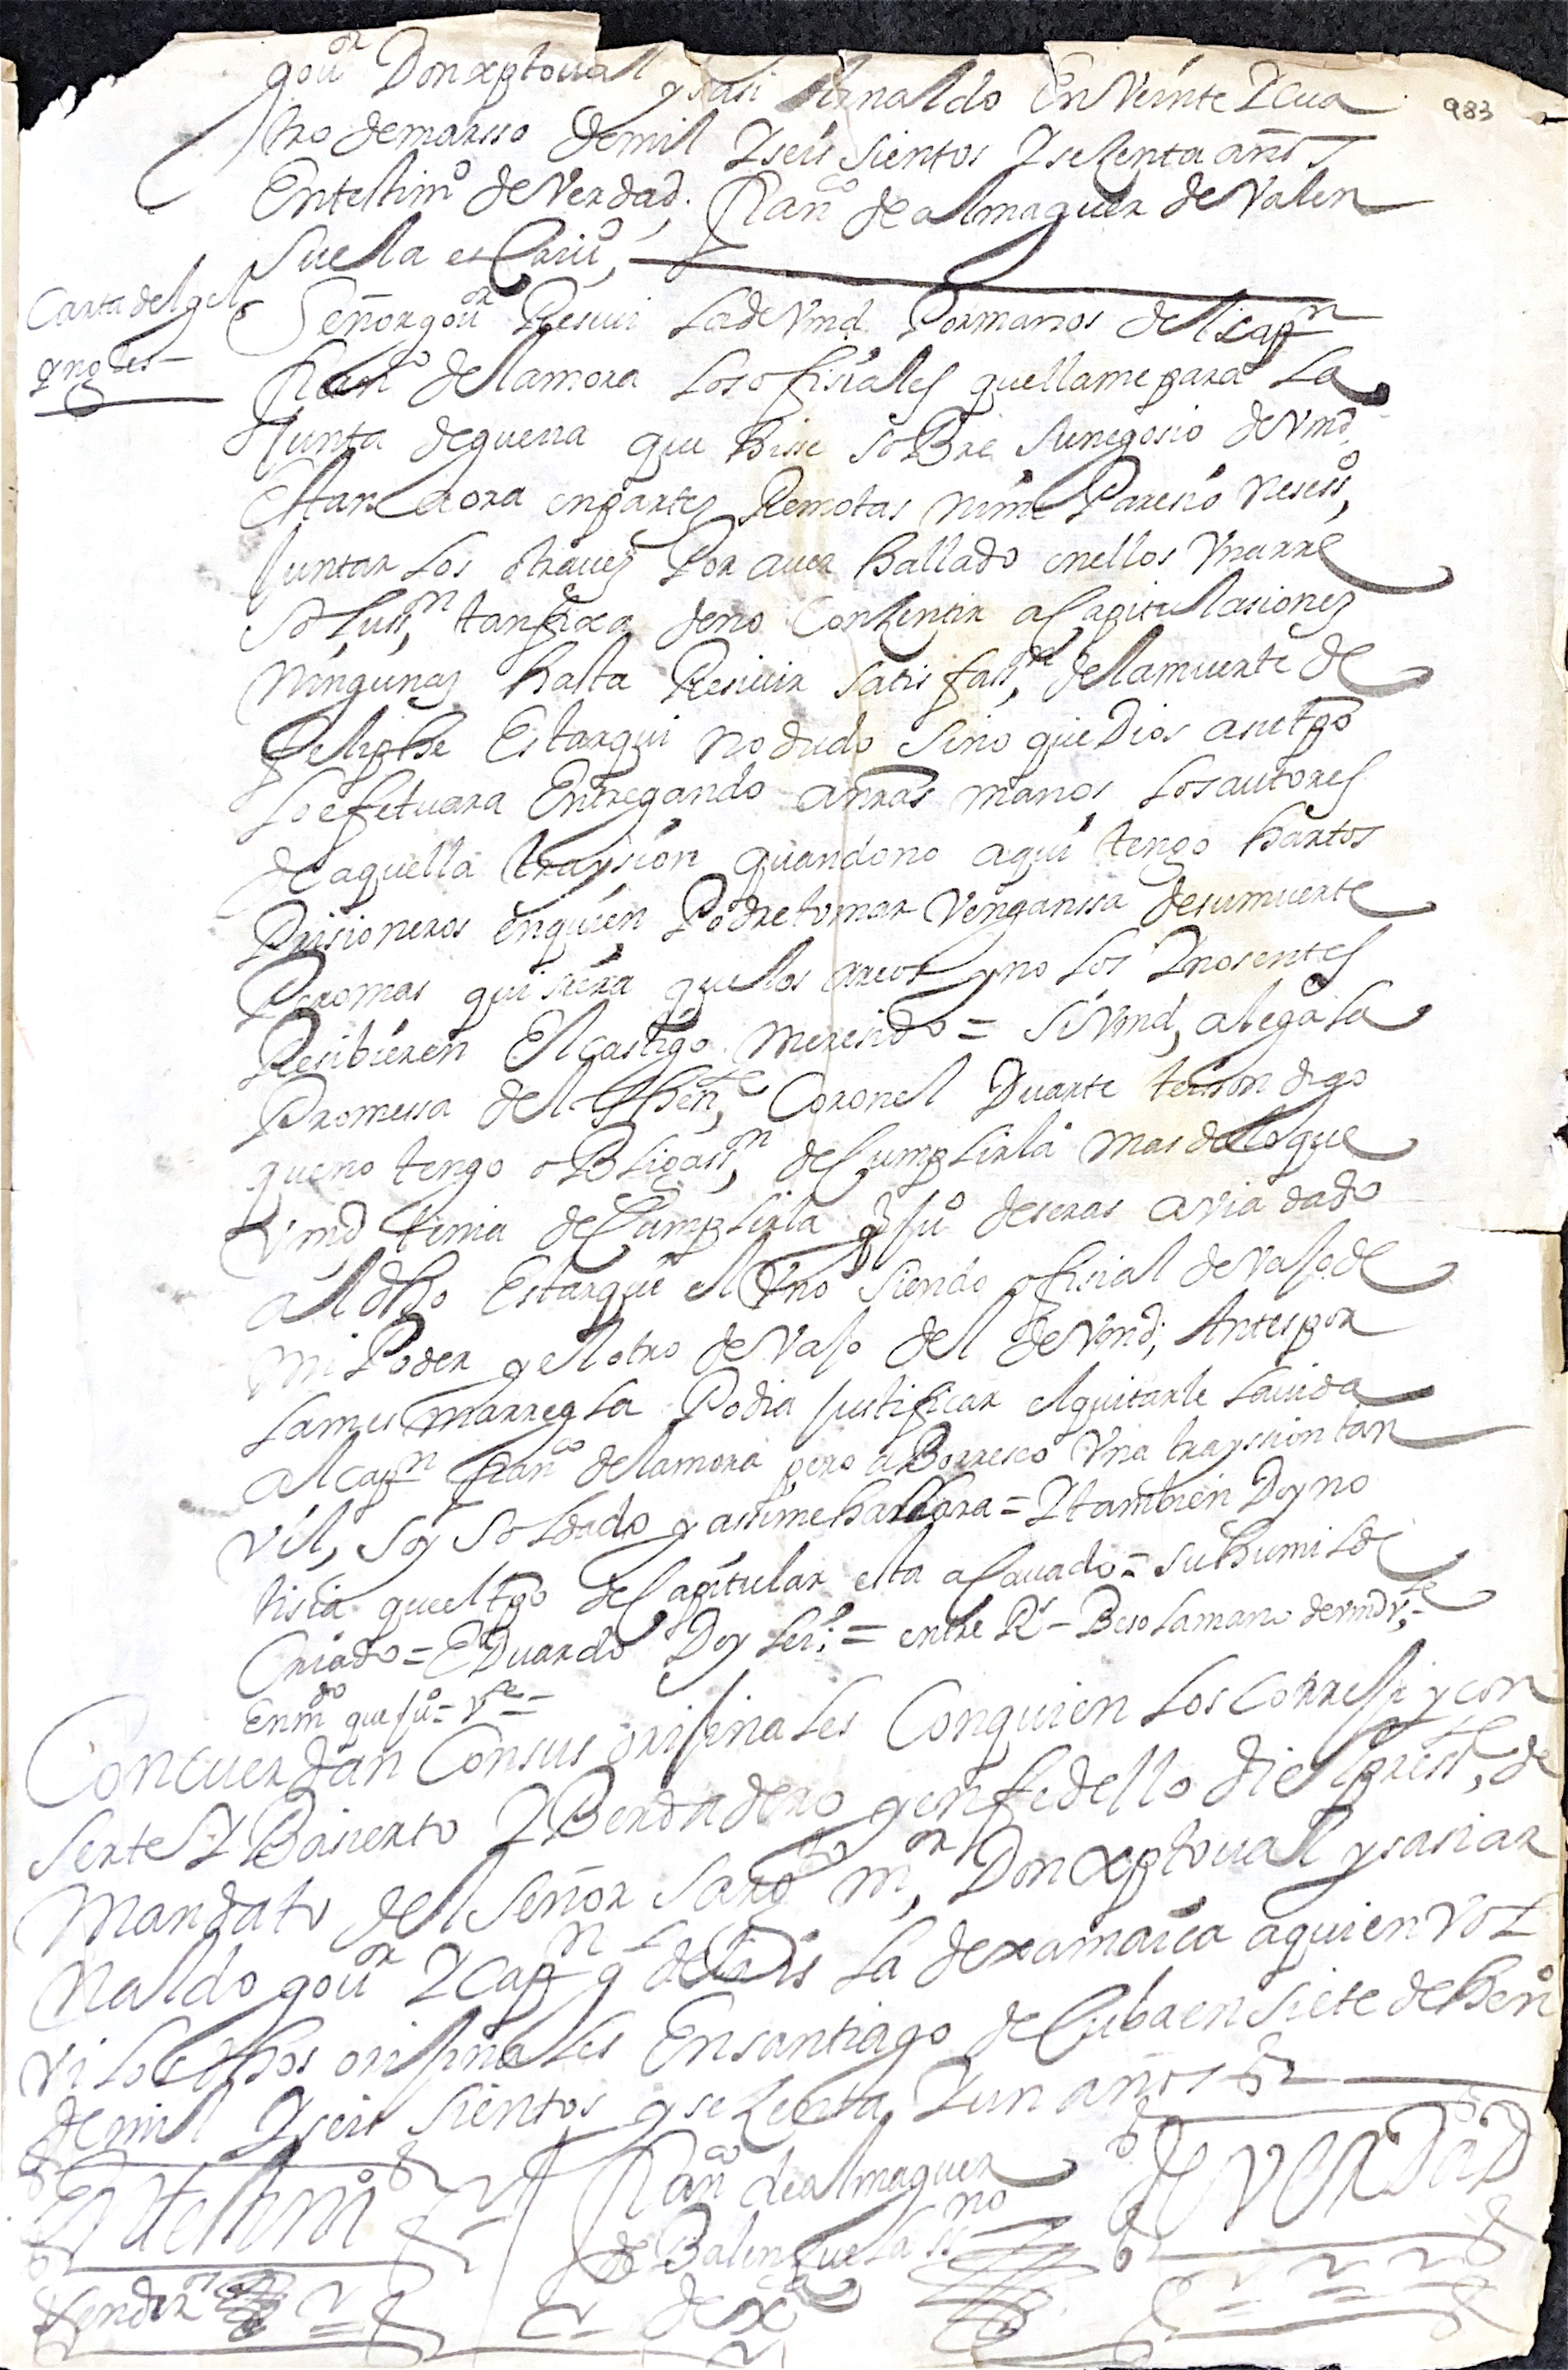 gouor Don xptoual ysasi Arnaldo En Veinte Y Cua
983
tro de marsso de mil Y seis sientos Y sesenta años
En testimo de Verdad. franco de almaguer de Valen
suela escriuo,
Carta del gel
yngles
Señor gouor Resiui la de Vmd Por manos del capn
franco de la mora los ofisiales que llame para la
Junta de guerra que hise soBre su negosio de Vmd
estan aora en partes Remotas ni me Paresio neseso,
Juntar los otra ues Por auer hallado en ellos Vna rre
solussn, tan fixa de no Consentir a Capitulasiones
ningunas hasta Resiuir satisfassn, de la muerte de
Feliphe Estarqui no dudo sino que Dios a su tpo
lo efetuara Entregando a nras manos los autores
de aquella traysion quando no aqui tengo hartos
Prisioneros en quien Podre tomar Venganssa de su muerte
Pero mas quisiera que los rreos y no los Ynosentes
Resibieren El castigo meresido = si Vmd, alega la
Promessa del Thente, Coronel Duarte digo
que no tengo oBligassn, de Cumplirla mas de lo que
Vmd tenia de Cumplirla q Juo deseras avia dado
al dho Estarque el Vno siendo ofisial de vajo de
mi Poder y el otro de Vajo del de Vmd; Antes por
la mesma rregla Podia justificar el quitarle la uida
al capn franco de la mora pero aBorresco Vna trayssion tan
vil, soy soldado y assi me hallara = Y tambien Doy no
tisia que el tpo de Capitular esta acauado = su humilde
Criado = Eduardo Doy ley; = entre Rs – Beso la mano de vmd vte
Enmdo que Juo = Vte =
Concuerdan Con sus orijinales Con quien los Correji y con
serte Y Basierto Y Berdadero y en fe dello di el presste, de
Mandato del Señor sargto mor, Don xptoual ysasi ar
naldo gouor Y Capn gl de la Ysla de xamaica a quien vol
vi los dhos orijinales En santiago de Cuba en siete de heno
de mil Y seis sientos y sesenta Y un años
En testimo
franco de almaguer
de Verdad
de Balensuela